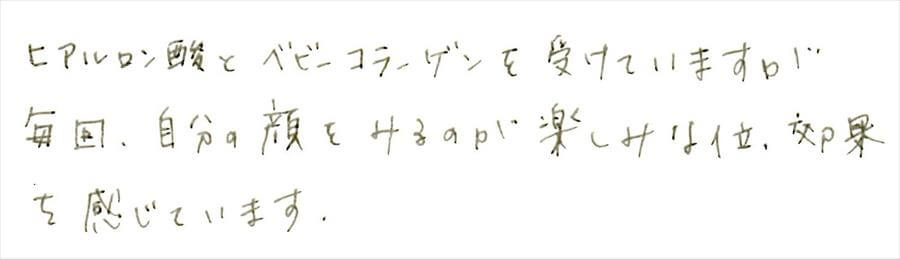 ヒアルロン酸とベビーコラーゲンを受けていますが
毎回、自分の顔をみるのが楽しみな位、効果
を感じています.